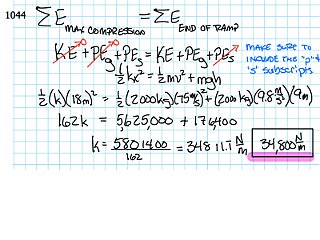 1044 ΣE MAX COMPRESSION = ΣE END OF RAMP
KE + PEg + PEs = KE + PEg + PEs
MAKE SURE TO INCLUDE THE "g" & "s" subscripts
½kx² = ½mv² + mgh
½(k)(18m)² = ½(2000kg)(75m/s)² + (2000kg)(9.8m/s²)(9m)
162k = 5,625,000 + 176,400
k = 5801400/162 = 34811.1 N/m
34,800 N/m